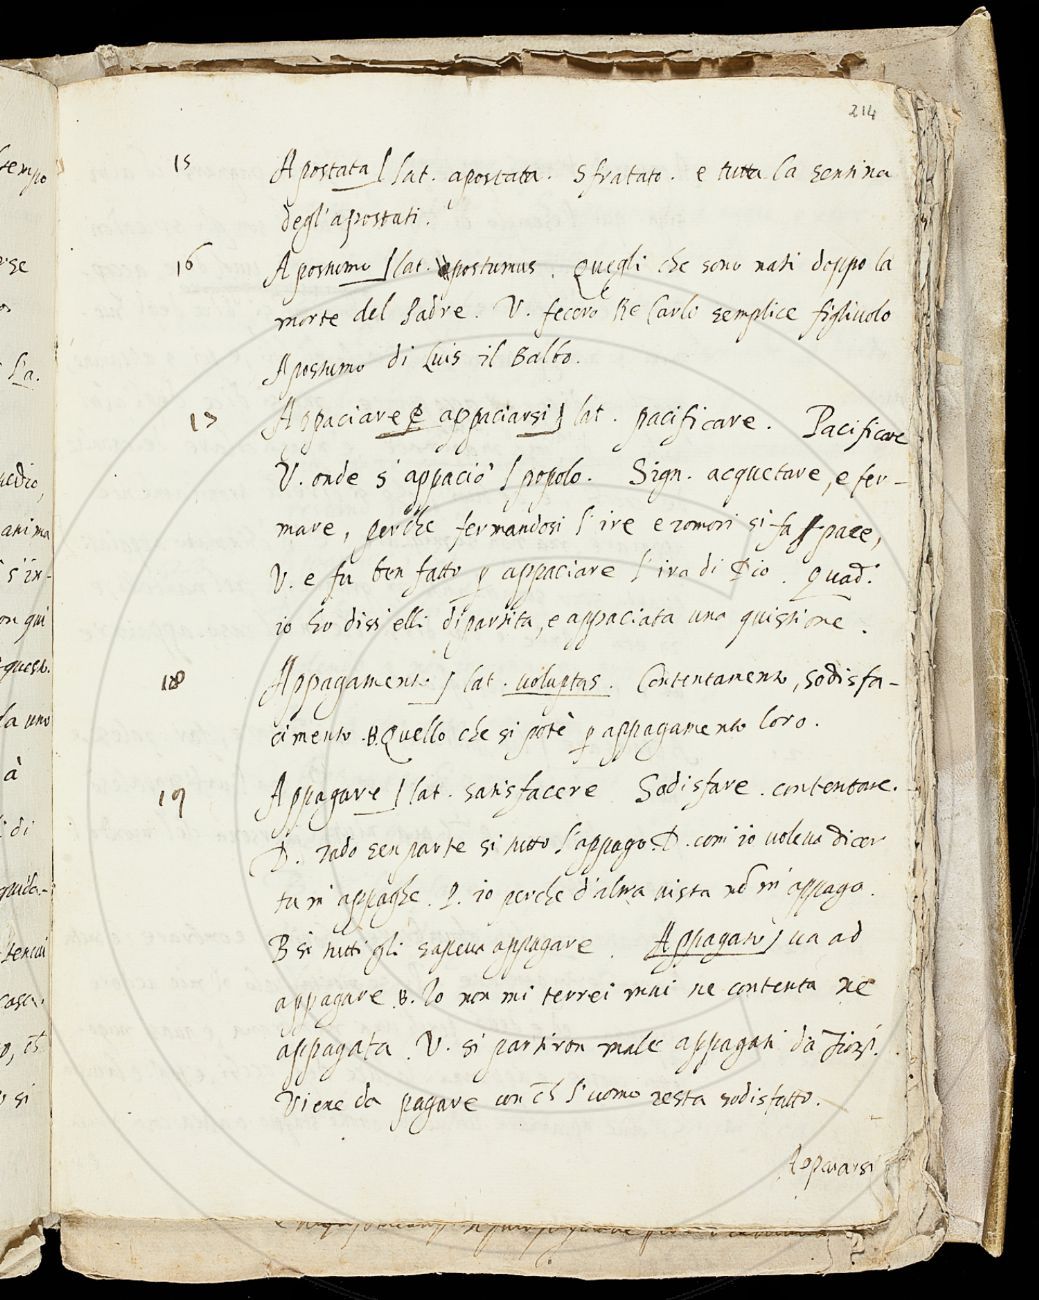 214
15 Apostata] lat. apostata. Sfratato. e tutta la sentina
degl'apostati.
16 Apostumo] lat. postumus. Quegli che sono nati doppo la
morte del Padre. V. fecero Re Carlo semplice figliuolo
Apostumo di Luis il Balbo.
17 Appaciare e appaciarsi] lat. pacificare. Pacificare
V. onde s'appaciò l popolo. Sign. acquetare, e fer-
mare, perche fermandosi l'ire e romori si fa pace,
V. e fu ben fatto p appaciare l'ira di Dio. Quad.
io ho dissi elli dipartita, e appaciata una quistione.
18 Appagamento] lat. voluptas. Contentamento, sodisfa-
cimento. B. Quello che si potè p appagamento loro.
19 Appagare] lat. satisfacere Sodisfare. contentare.
D. rado sen parte si tutto l'appago. D. com'io voleva dicer
tu m'appaghe. P. io perche d'altra vista nō m'appago.
B si tutti gli sapeva appagare. Appagato] va ad
appagare B. Io non mi terrei mai ne contenta ne
appagata. V. si partiron male appagati da
Viene da pagare con ch̄ l'uomo resta sodisfatto.
Appararsi
tempo
La.
anima
s'in-
on qui
la uno
à
di
si